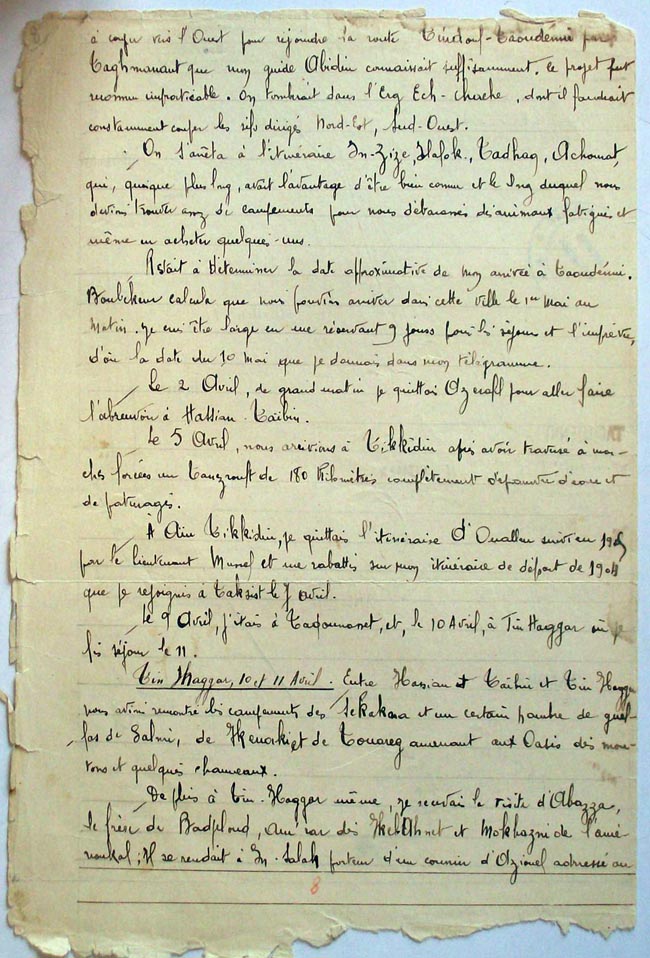 à couper vers l'Ouest pour rejoindre la route Tindouf-Taoudénni par
Taghmanant que mon guide Abidin connaissait suffisamment. Ce projet fut
reconnu impraticable. On tombrait dans l'Erg Ech-cherche, dont il faudrait
constamment couper les sifs dirigés Nord-Est, Sud-Ouest.
On s'arrêta à l'itinéraire In-Zize, Tadhaq, Achourat,
qui, quoique plus long, avait l'avantage d'être bien connu et le long duquel nous
devions trouver assez de campements pour nous débarasser des animaux fatigués et
même en acheter quelques-uns.
Restait à déterminer la date approximative de mon arrivée à Taoudénni.
Boubekeur calcula que nous pouvions arriver dans cette ville le 1er Mai au
Matin. Je crus être large en me réservant 9 jours pour les séjours et l'imprévu,
d'où la date du 10 Mai que je donnais dans mon télégramme.
Le 2 Avril, de grand matin je quittais Azerafil pour aller faire
l'abreuvoir à Hassian-Taibin.
Le 5 Avril, nous arrivions à Tikkidin après avoir traversé à mar-
ches forcées un Tanezrouft de 180 kilomètres complètement dépourvu d'eau et
de paturages.
À Ain Tikkidin, je quittais l'itinéraire d'Ouallen suivi en 1905
par le lieutenant Mussel et me rabattis sur mon itinéraire de départ de 1904
que je rejoignis à Taksist le 7 avril.
Le 9 Avril, j'étais à Tadounanet, et, le 10 Avril, à Tin Haggar où je
fis séjour le 11.
Tin Haggar, 10 et 11 Avril. Entre Hassian Taibin et Tin Haggar
nous avions rencontré les campements des Sekakna et un certain nombre de
de Salmi, de et de Touareg amenant aux Oasis des mou-
tons et quelques chameaux.
De plus à Tin-Haggar même, je recevais la visite d'Abazza,
le frère de Badjeloud, am'rar des Kel Ahnet et Mokhazni de l'amé-
noukal; Il se rendait à In-Salah porteur d'un courrier d'Aziouel adressé au
8